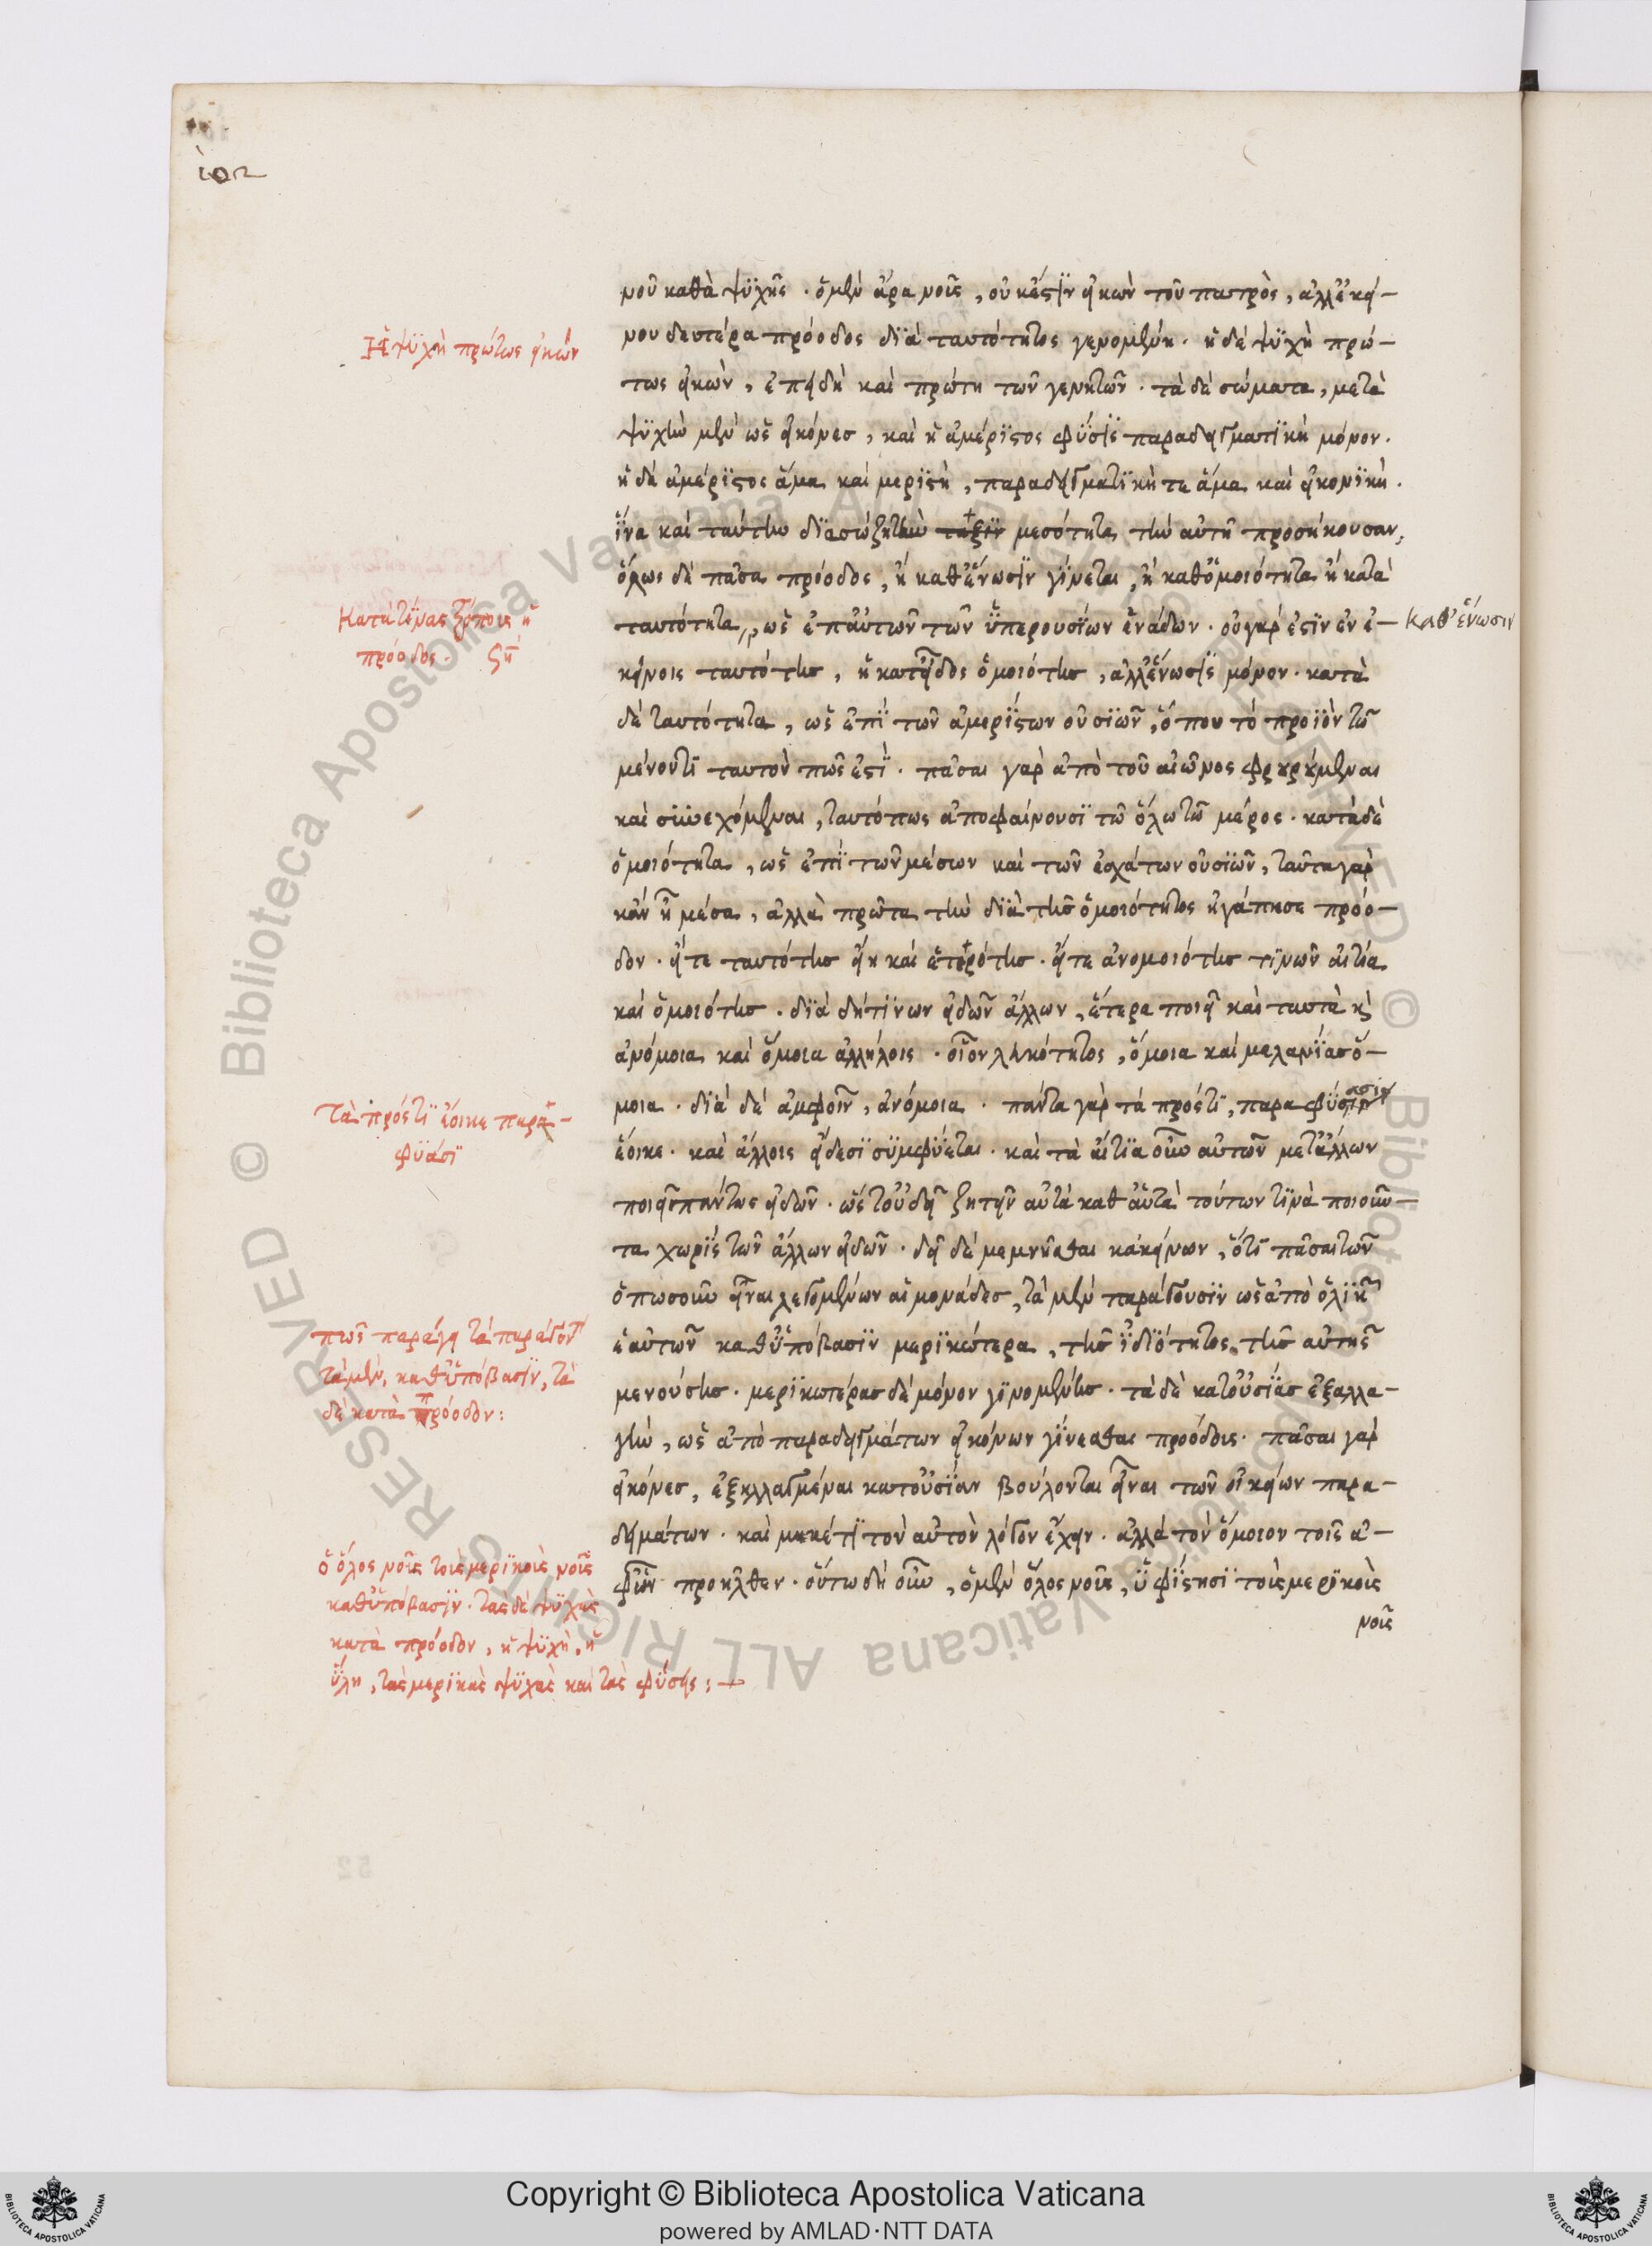 μοῦ καθὰ ψυχῆς. ὁ μὲν ἄρα νοῦς, οὐκ ἔστιν εἰκὼν τοῦ πατρὸς, ἀλλ' ἐκεί-
Ἡ ψυχὴ πρώτως εἰκών
νου δευτέρα πρόοδος διὰ ταυτότητος γενομένη. ἡ δὲ ψυχὴ πρώ-
τως εἰκὼν, ἐπειδὴ καὶ πρώτη τῶν γενητῶν. τὰ δὲ σώματα, μετὰ
ψυχὴν μὲν ὡς εἰκόνες, καὶ ἡ ἀμέριστος φύσις παραδειγματικὴ μόνον.
ἡ δὲ ἀμέριστος ἅμα καὶ μεριστὴ, παραδειγματικὴ τε ἅμα καὶ εἰκονικὴ.
ἵνα καὶ ταύτην διασώζῃ τὴν τάξιν μεσότητα τὴν αὐτῇ προσήκουσαν,
ὅλως δὲ πᾶσα πρόοδος, ἢ καθ' ἕνωσιν γίνεται, ἢ καθ' ὁμοιότητα ἢ κατὰ
Κατὰ τίνας τρόπους ἡ
πρόοδος. ζή
ταυτότητα, ὡς ἐπ' αὐτῶν τῶν ὑπερουσίων ἑνάδων. οὐ γάρ ἐστιν ἐν ἐ-
καθ' ἕνωσιν
κείνοις ταυτότης, ἢ κατ' εἶδος ὁμοιότης, ἀλλ' ἕνωσις μόνον. κατὰ
δὲ ταυτότητα, ὡς ἐπὶ τῶν ἀμερίστων οὐσιῶν, ὅπου τὸ προϊὸν τῷ
μένοντι ταυτόν πώς ἐστι. πᾶσαι γὰρ ἀπὸ τοῦ αἰῶνος φρουρούμεναι
καὶ συνεχόμεναι, ταυτόπως ἀποφαίνουσι τῷ ὅλῳ τῷ μέρος. κατὰ δὲ
ὁμοιότητα, ὡς ἐπὶ τῶν μέσων καὶ τῶν ἐσχάτων οὐσιῶν, ταῦτα γὰρ
κἂν ᾖ μέσα, ἀλλὰ πρῶτα τὴν διὰ τῆς ὁμοιότητος ἠγάπησε πρόο-
δον. εἴτε ταυτότης εἴη καὶ ἑτερότης. εἴτε ἀνομοιότης τινῶν αἰτία
καὶ ὁμοιότης. διὰ δή τινων εἰδῶν ἄλλων, ἕτερα ποιεῖ καὶ ταυτὰ καὶ
ἀνόμοια καὶ ὅμοια ἀλλήλοις. οἷον λευκότητος, ὅμοια καὶ μελανίας ὅ-
μοια. διὰ δὲ ἀμφοῖν, ἀνόμοια. πάντα γὰρ τὰ πρός τι, παραφύσιν
ασιν
Τὰ πρός τι ἔοικε παρα-
φυάσι
ἔοικε. καὶ ἄλλοις εἴδεσι συμφύεται. καὶ τὰ αἴτια οὖν αὐτῶν μετ' ἄλλων
ποιεῖ πάντως εἰδῶν. ὥστ' οὐ δεῖ ζητεῖν αὐτὰ καθ' αὑτὰ τούτων τινὰ ποιοῦν-
τα χωρὶς τῶν ἄλλων εἰδῶν. δεῖ δὲ μεμνῆσθαι κἀκείνων, ὅτι πᾶσαι τῶν
ὁπωσοῦν εἶναι λεγομένων αἱ μονάδες, τὰ μὲν παράγουσιν ὡς ἀπὸ ὁλικῆς
πῶς παράγει τὰ παράγοντα
τὰ μὲν, καθ' ὑπόβασιν, τὰ
δὲ κατὰ πρόοδον:
ἑαυτῶν καθ' ὑπόβασιν μερικώτερα, τῆς ἰδιότητος τῆς αὐτῆς
μενούσης. μερικωτέρας δὲ μόνον γινομένης. τὰ δὲ κατ' οὐσίας ἐξαλλα-
γὴν, ὡς ἀπὸ παραδειγμάτων εἰκόνων γίνεσθαι προόδοις. πᾶσαι γὰρ
εἰκόνες, ἐξηλλαγμέναι κατ' οὐσίαν βούλονται εἶναι τῶν οἰκείων παρα-
δειγμάτων. καὶ μηκέτι τὸν αὐτὸν λόγον ἔχειν. ἀλλὰ τὸν ὅμοιον τοῖς ἀ-
φ' ὧν προῆλθεν. οὕτω δὴ οὖν, ὁ μὲν ὅλος νοῦς, ὑφίστησι τοὺς μερικοὺς
νοῦς
ὁ ὅλος νοῦς τοὺς μερικοὺς νοῦς
καθ' ὑπόβασιν. τὰς δὲ ψυχὰς
κατὰ πρόοδον, ἡ ψυχὴ, ἡ
ὕλη, τὰς μερικὰς ψυχὰς καὶ τὰς φύσεις:
Copyright © Biblioteca Apostolica Vaticana
powered by AMLAD·NTT DATA
© Biblioteca Apostolica Vaticana ALL RIGHTS RESERVED